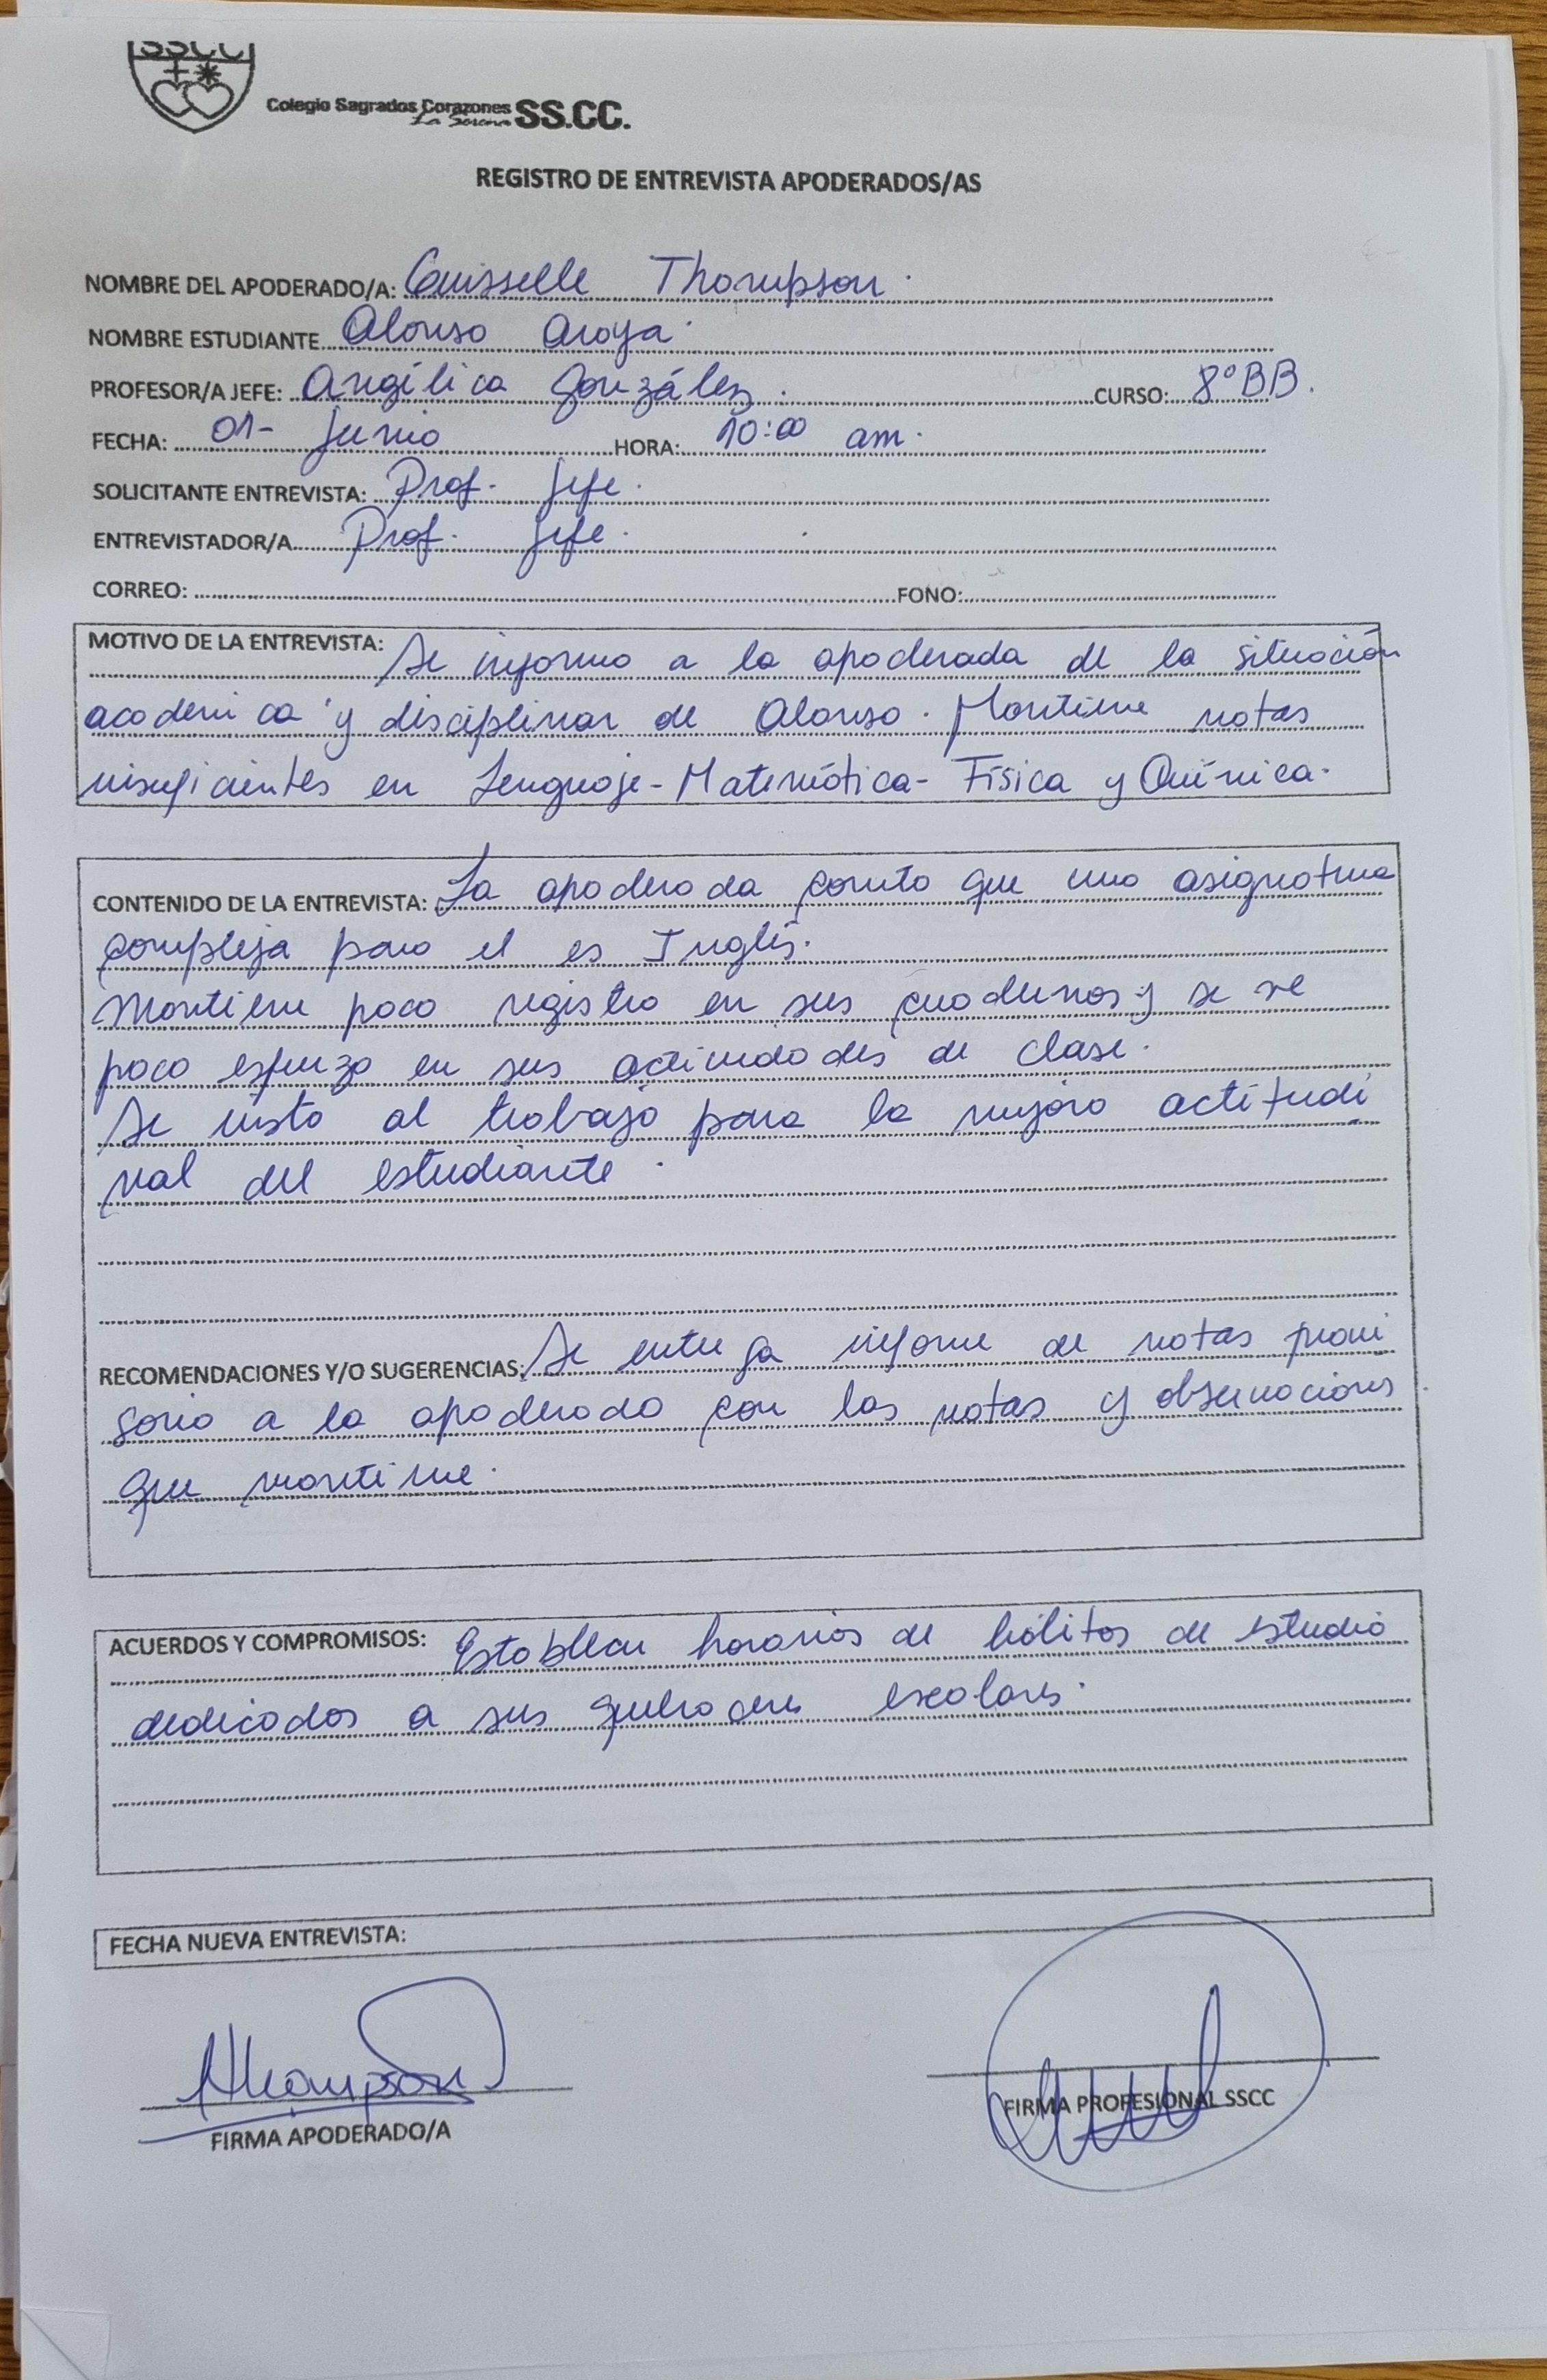 SSCC
Colegio Sagrados Corazones SS.CC.
La Serena
REGISTRO DE ENTREVISTA APODERADOS/AS
NOMBRE DEL APODERADO/A: Guisselle Thompson.
NOMBRE ESTUDIANTE Alonso Araya.
PROFESOR/A JEFE: Angélica González. CURSO: 8°BB.
FECHA: 01- Junio HORA: 10:00 am.
SOLICITANTE ENTREVISTA: Prof. Jefe.
ENTREVISTADOR/A Prof. Jefe.
CORREO: FONO:
MOTIVO DE LA ENTREVISTA: Se informa a la apoderada de la situación
academica y disciplinar de Alonso. Mantiene notas
insuficientes en Lenguaje-Matemática- Física y Química.
CONTENIDO DE LA ENTREVISTA: La apoderada comenta que una asignatura
compleja para el es Inglés.
Mantiene poco registro en sus cuadernos y se ve
poco esfuerzo en sus actividades de clase.
Se insta al trabajo para la mejora actitudi
nal del estudiante.
RECOMENDACIONES Y/O SUGERENCIAS: Se entrega informe de notas provi
sorio a la apoderada con las notas y observaciones
que mantiene.
ACUERDOS Y COMPROMISOS: Establecer horarios de hábitos de estudio
dedicados a sus quehaceres escolares.
FECHA NUEVA ENTREVISTA:
Thompson
FIRMA APODERADO/A
FIRMA PROFESIONAL SSCC